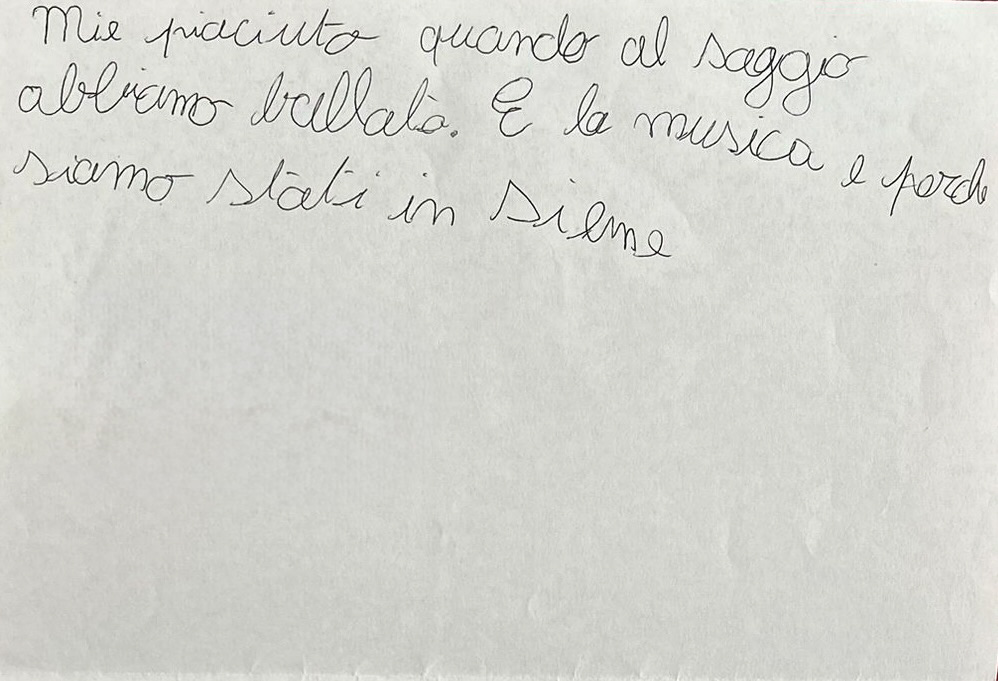 Mie piaciuto quando al saggio
abbiamo ballato. E la musica e perch
siamo stati in sieme